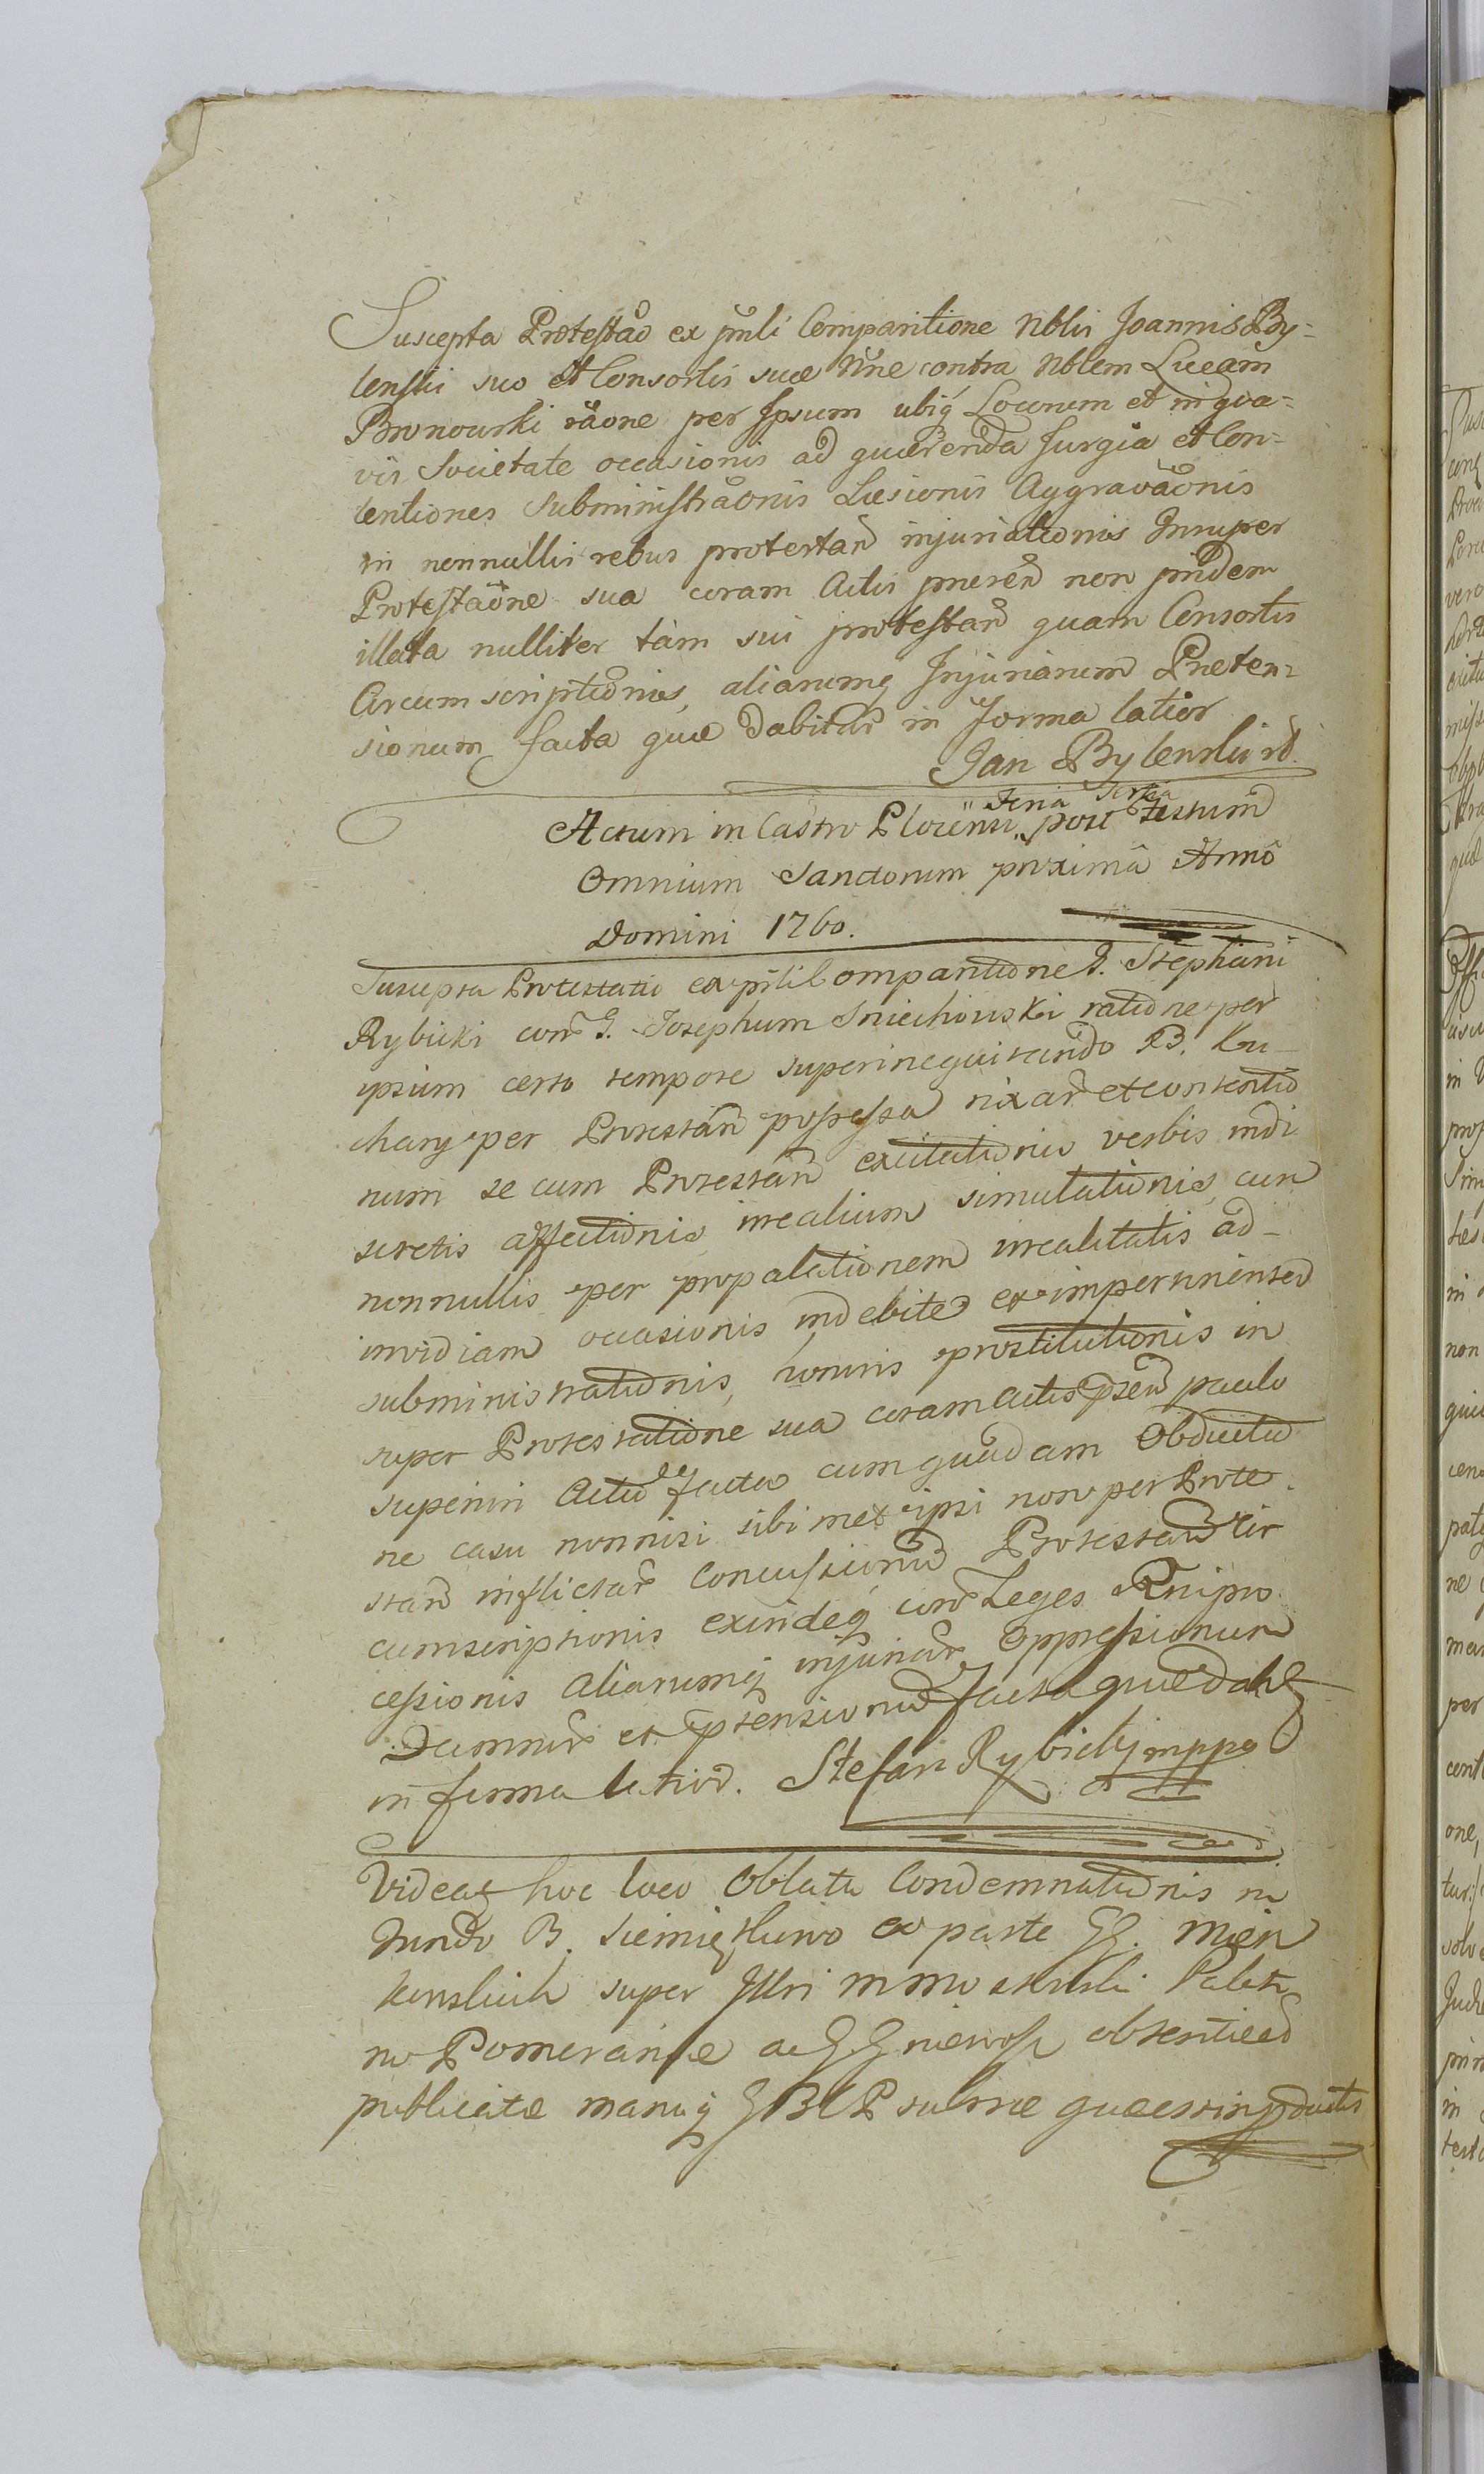 Suscepta Protestao ex pnli Comparitione Nblis Joannis By=
lenski suo et Consortis suæ Nne contra Nblem Lucam
Bronowski raone per Ipsum ubiq Locorum et in qua=
vis Societate occasionis ad quærenda Jurgia et Con=
tentiones Subministraonis Læsionis Aggravaonis
in nonnullis rebus protestan injuriationis Insuper
Protestaone sua coram Actis pneren non pridem
illata nulliter tam sui protestan quam Consortis
Circumscriptionis, aliarumq Injuriarum Præten=
sionum facta quæ dabitur in forma latior
Jan Bylenski
Actum in Castro Plocensi Feria Tertia post Festum
Omnium Sanctorum proxima Anno
Domini 1760.
Suscepta Protestatio ex pnli Comparitione G. Stephani
Rybicki con G. Josephum Sniechowski ratione per
ipsum certo tempore superinequitando B. Ku-
chary per Protestan possessa rixar et contentio
num se cum Protestan excitationis verbis indi
scretis affectionis irealium simulationis, cun
nonnullis per propalationem irealitatis ad-
invidiam occasionis indebite et impertinenter
subministrationis, honoris prostitutionis in
super Protestatione sua coram actis psen paulo
superiori Actu de facto cum quadam Obductio
ne casu nonnisi sibimet ipsi non per Prote-
stan inflictar Concussionum Protestan Cir
cumscriptionis exindeq con Leges Rnipro
cessionis aliarumq injuriar Oppressionum
Damnor et ptensionum facta quæ dabr
in forma latior. Stefan Rybicki mppa
Videatr hoc loco Oblata Condemnationis in
fundo B. ex parte GG.
super Illri Palati
no Pomeraniæ ac GG absentiæ
publicatæ manuq